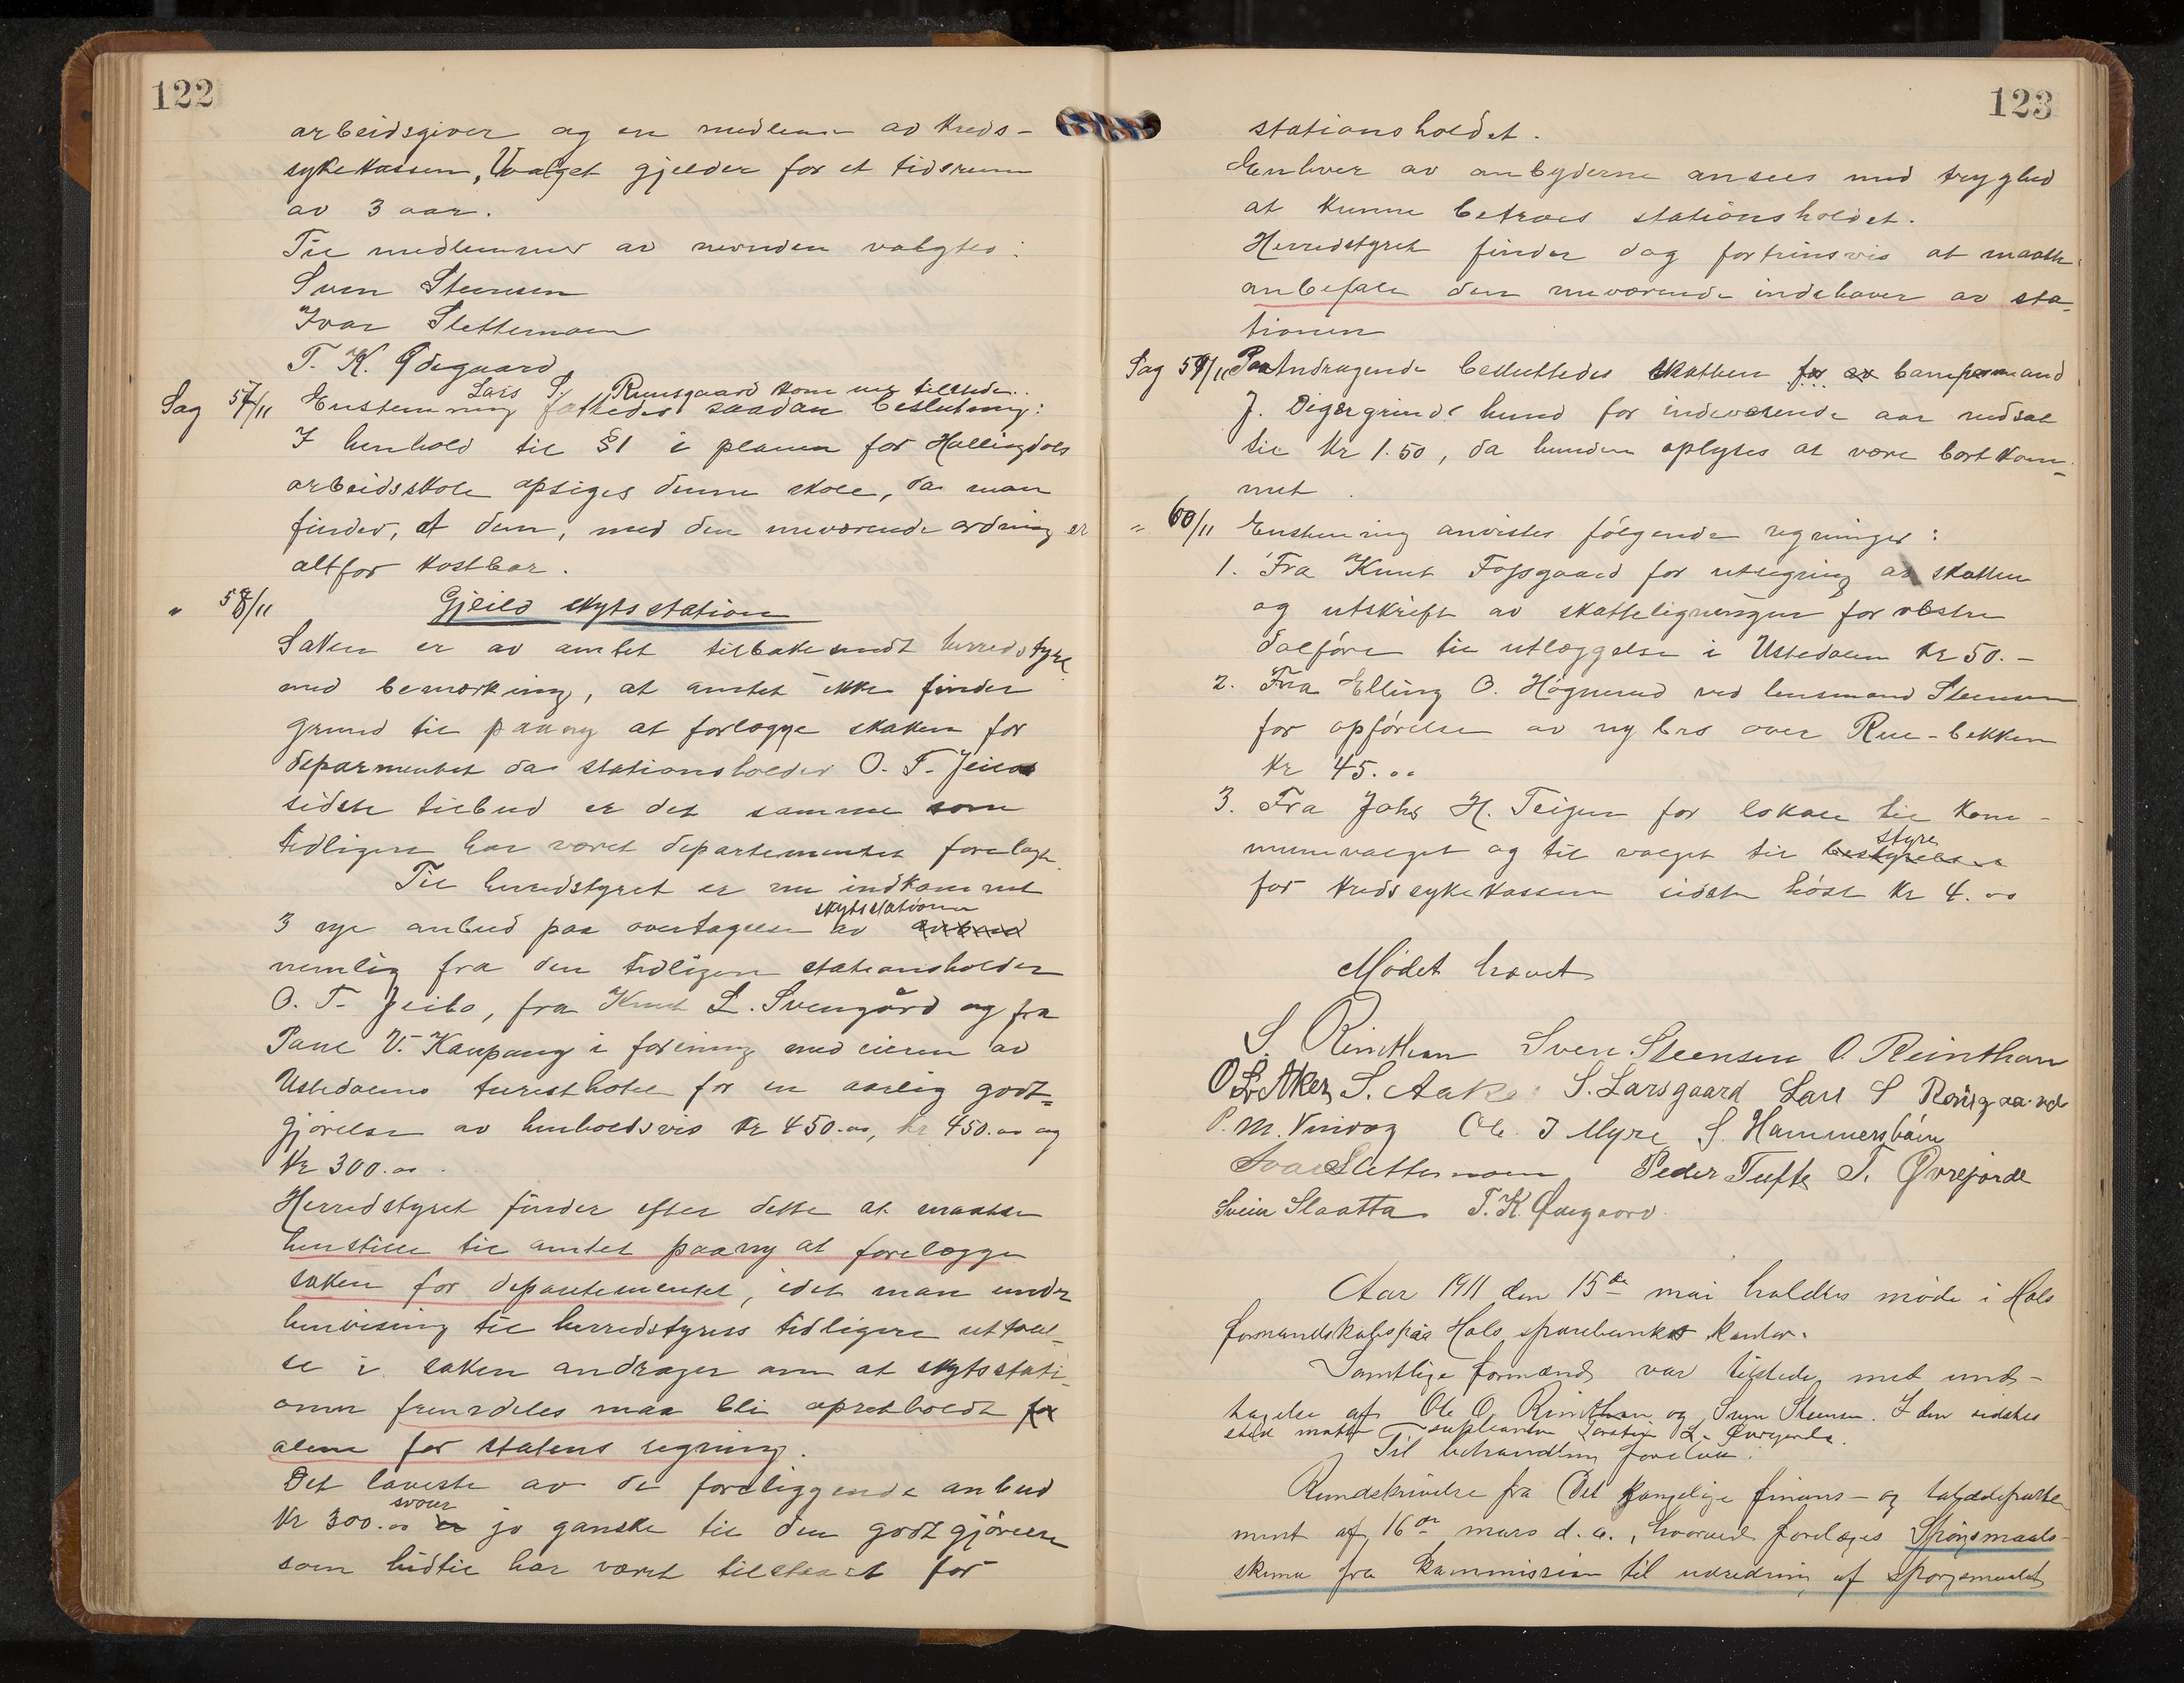 122
arbeidsgiver og en medlem av kreds-
sykekassen, Valget gjelder for et tidsrum
av 3 aar.
Til medlemmer av nevnden valgtes:
Sven Steensen
Ivar Slettemoen
T. K. Ødegaard
Lars S. Runsgaard kom nu tilstede.
Sag 57/11 Enstemmig fattedes saadan beslutning:
I henhold til §1 i planen for Hallingdals
arbeidsskole opsiges denne skole, da man
finder, at den, med den nuværende ordning er
altfor kostbar.
" 58/11 Gjeilo skytsstation
Saken er av amtet tilbakesendt herredstyre
med bemerkning, at amtet ikke finder
grund til paany at forlægge skaken for
deparmentet da stationsholder O. T. Jeilos
sidste tilbud er det samme som
tidligere har været departementet forelagt.
Til herredstyret er nu indkommet
3 nye anbud paa overtagelse av skytsstationen anbud
nemlig fra den tidligere stationsholder
O. T. Jeilo, fra Knut L. Svengård og fra
Paul V. Kaupang i forening med eieren av
Ustedalens turisthotel for en aarlig godt=
gjørelse av henholdsvis Kr 450.oo, kr 450.oo og
Kr 300.oo.
Herredstyret finder efter dette at maatte
henstille til amtet paany at forelægge
saken for departementet, idet man under
henvisning til herredstyrets tidligere uttalel-
se i saken andrager om at skytsstati-
onen fremdeles maa bli opretholdt for
alene for statens regning.
Det laveste av de foreliggende anbud
Kr 300.oo er svarer jo ganske til den godtgjørelse
som hidtil har været tilstaaet for
123
stationsholdet.
Enhver av anbyderne ansees med tryghed
at kunne betroes stationsholdet.
Herredstyret finder dog fortrinsvis at maatte
anbefale den nuværende indehaver av sta-
tionen
Sag 59/11 Paa Andragende besluttedes skatten for
J. Digergrinds hund for indeværende aar nedsat
til Kr 1.50, da hunden oplyses at være bortkom-
met.
" 60/11 Enstemmig anvistes følgende regninger:
1. Fra Knut Fossgaard for utregning av skatten
og utskrift av skatteligningen for vestre
dalføre til utlæggelse i Ustedalen Kr 50.-
2. Fra Elling O. Høgnerud ved lensmand Steensen
for opførelse av ny bro over Rue-bekken
Kr 45.oo
3. Fra Johs H. Teigen for lokale til kom-
munevalget og til valget til bestyrelse styre
for kredssykekassen sidste høst Kr 4.oo
Mødet hævet
S. Rinthan Sven Steensen O. Reinthan
O L Aker S. Aaker S. Larsgaard Lars S Rønsgaard
P. M. Vindeg Ole J Myre S. Hammersbøen
Ivar Slettemoen Peder Tufte T. Øvrejorde
Svein Slaatta T. K. Ødegaard.
Aar 1911 den 15de mai holdtes møde i Hols
formandskab paa Hols sparebanks kontor.
Samtlige formænd var tilstede, med und-
tagelse af Ole O. Rinthan og Sven Steensen. I den sidstes
sted møtte supleanten Torstein L. Øvrejorde.
Til behandling forelaa:
Rundskrivelse fra Det kongelige finans- og tolddeparte
ment af 16de mars d.a., hvorved forelægges Spørgsmaals-
skema fra kommission til udredning af spørgsmaalet